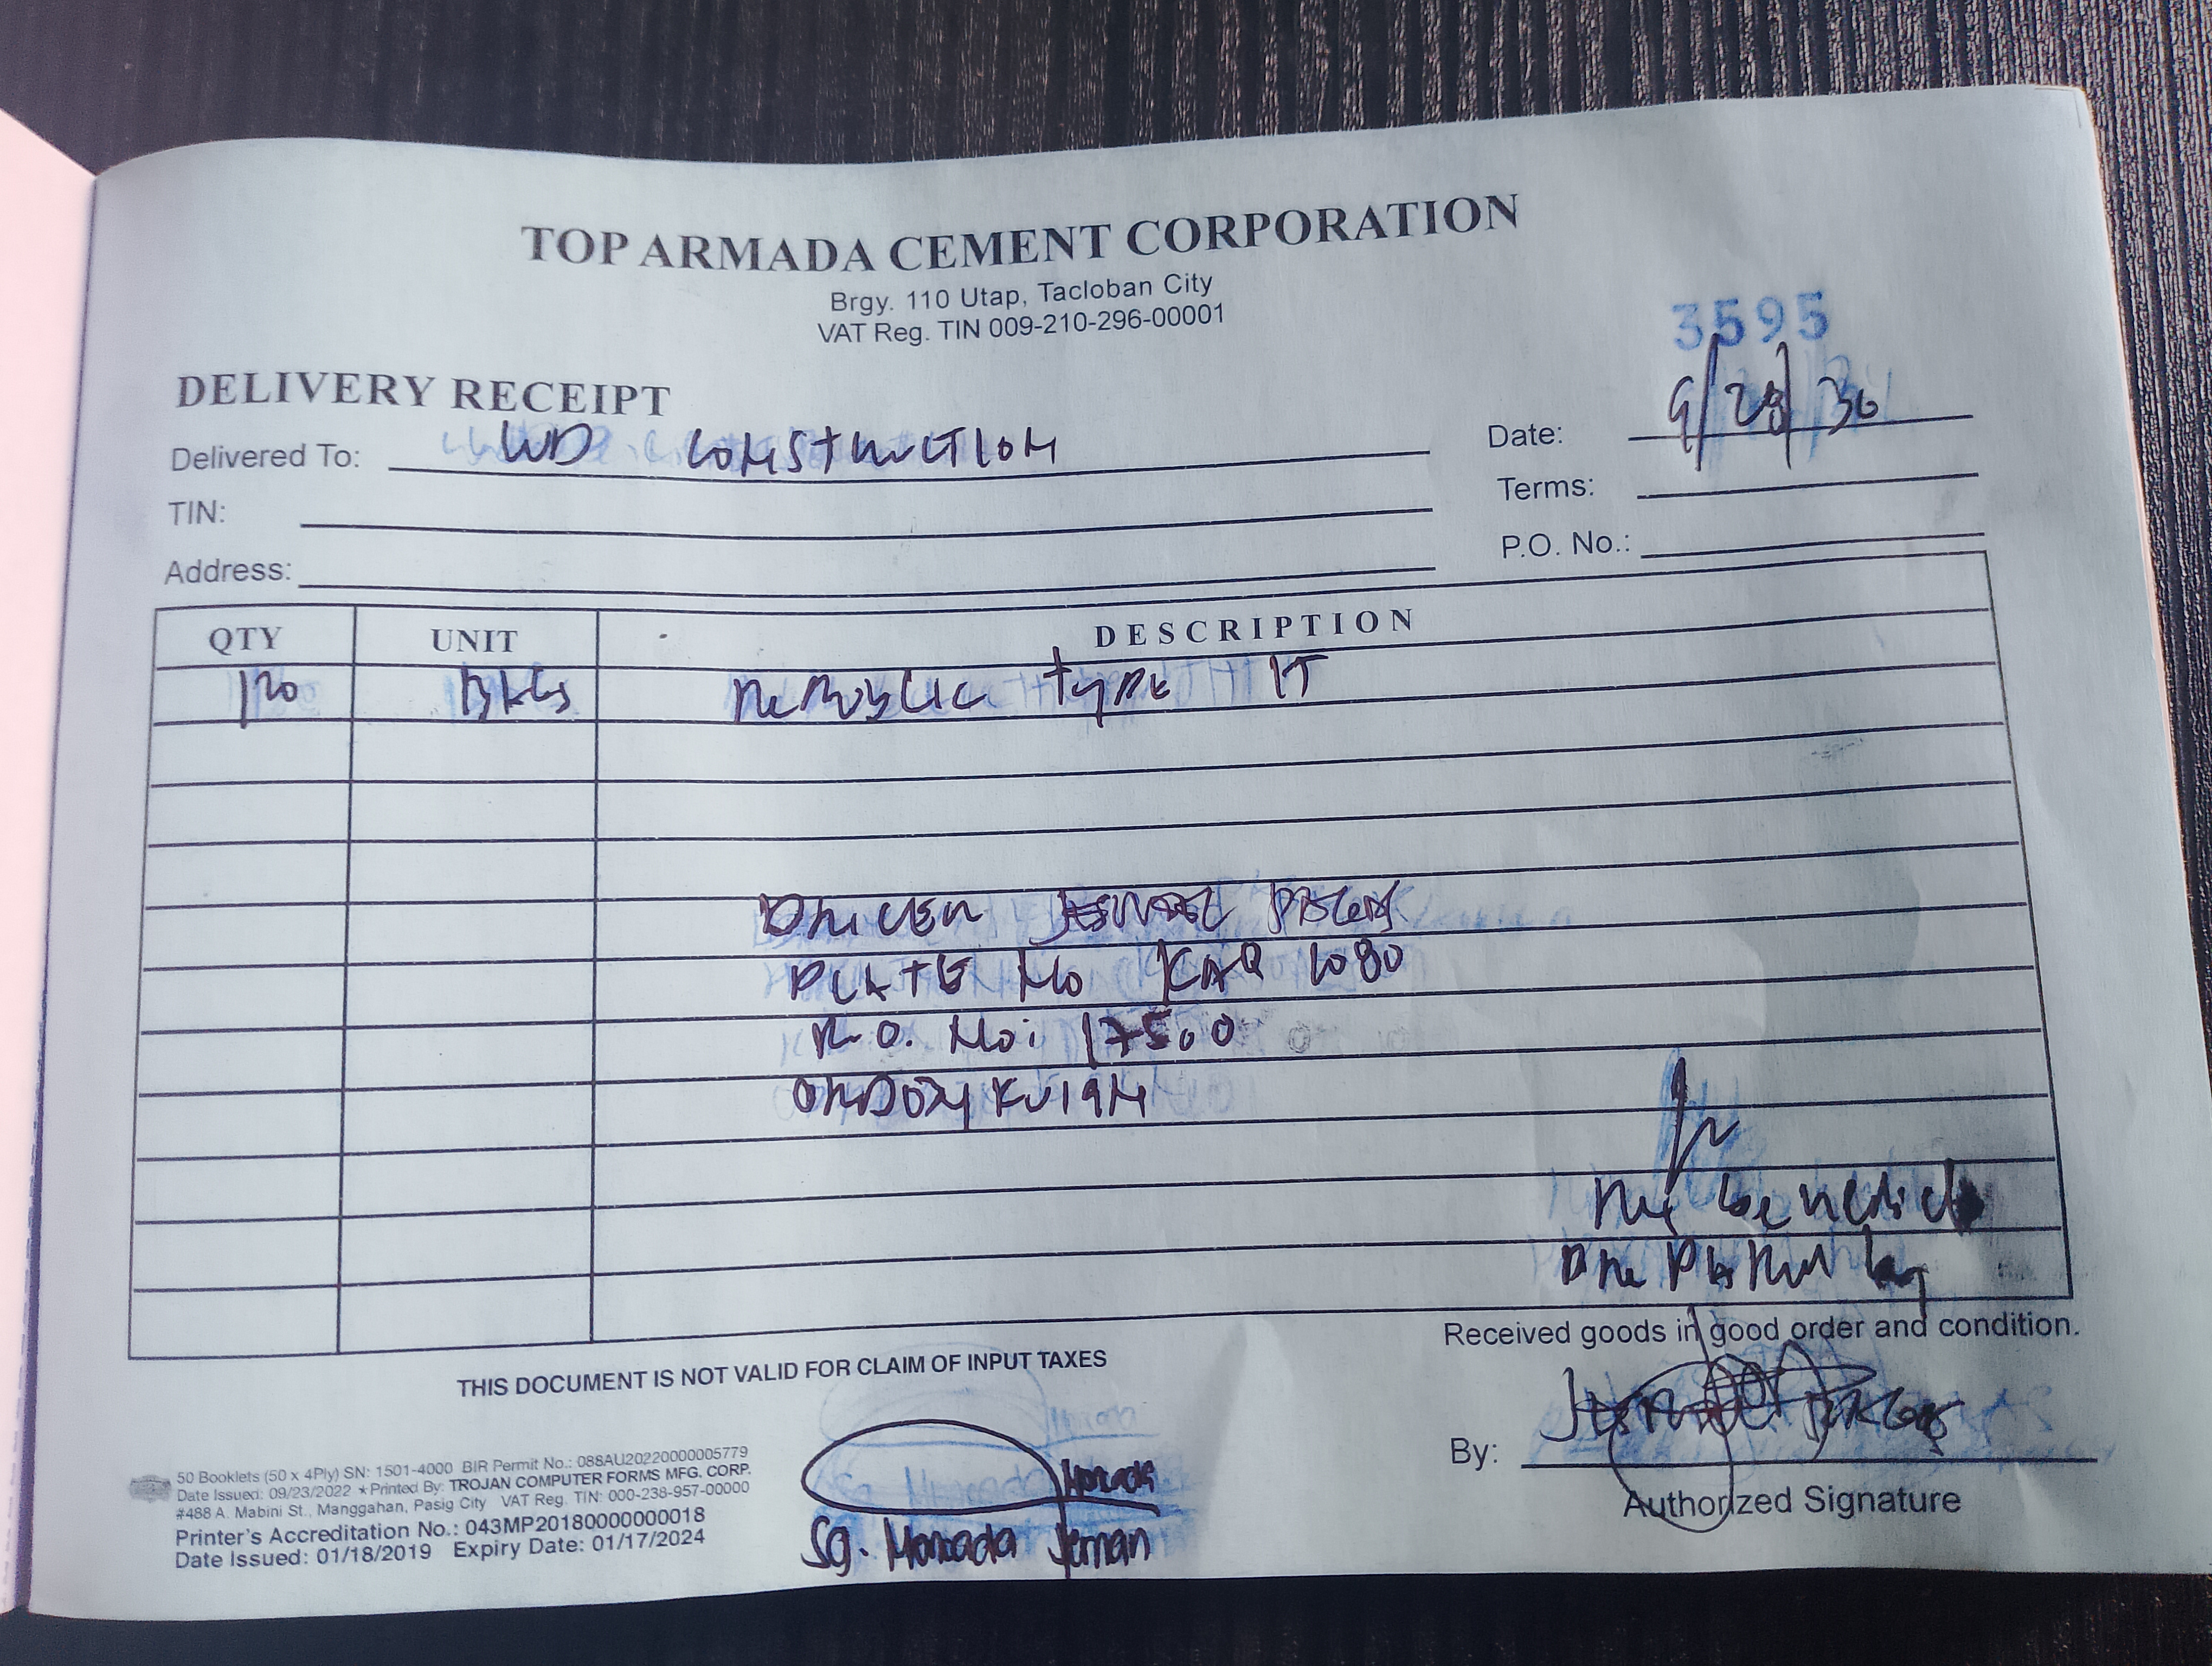 TOP ARMADA CEMENT CORPORATION
Brgy. 110 Utap, Tacloban City
VAT Reg. TIN 009-210-296-00001
3595
DELIVERY RECEIPT
Delivered To: WD CONSTRUCTION
Date: 9/28/30
TIN:
Terms:
Address:
P.O. No.:
QTY UNIT DESCRIPTION
120 BAGS REPUBLIC TYPE 1T
DRIVER
PLATE NO KAQ 1080
R.O. No: 17500
benedict
Received goods in good order and condition.
THIS DOCUMENT IS NOT VALID FOR CLAIM OF INPUT TAXES
By:
Authorized Signature
50 Booklets (50 x 4Ply) SN: 1501-4000 BIR Permit No.: 088AU20220000005779
Date Issued: 09/23/2022 ★Printed By: TROJAN COMPUTER FORMS MFG. CORP.
#488 A. Mabini St., Manggahan, Pasig City VAT Reg. TIN: 000-238-957-00000
Printer's Accreditation No.: 043MP20180000000018
Date Issued: 01/18/2019 Expiry Date: 01/17/2024
Sg. Moncada Jernan